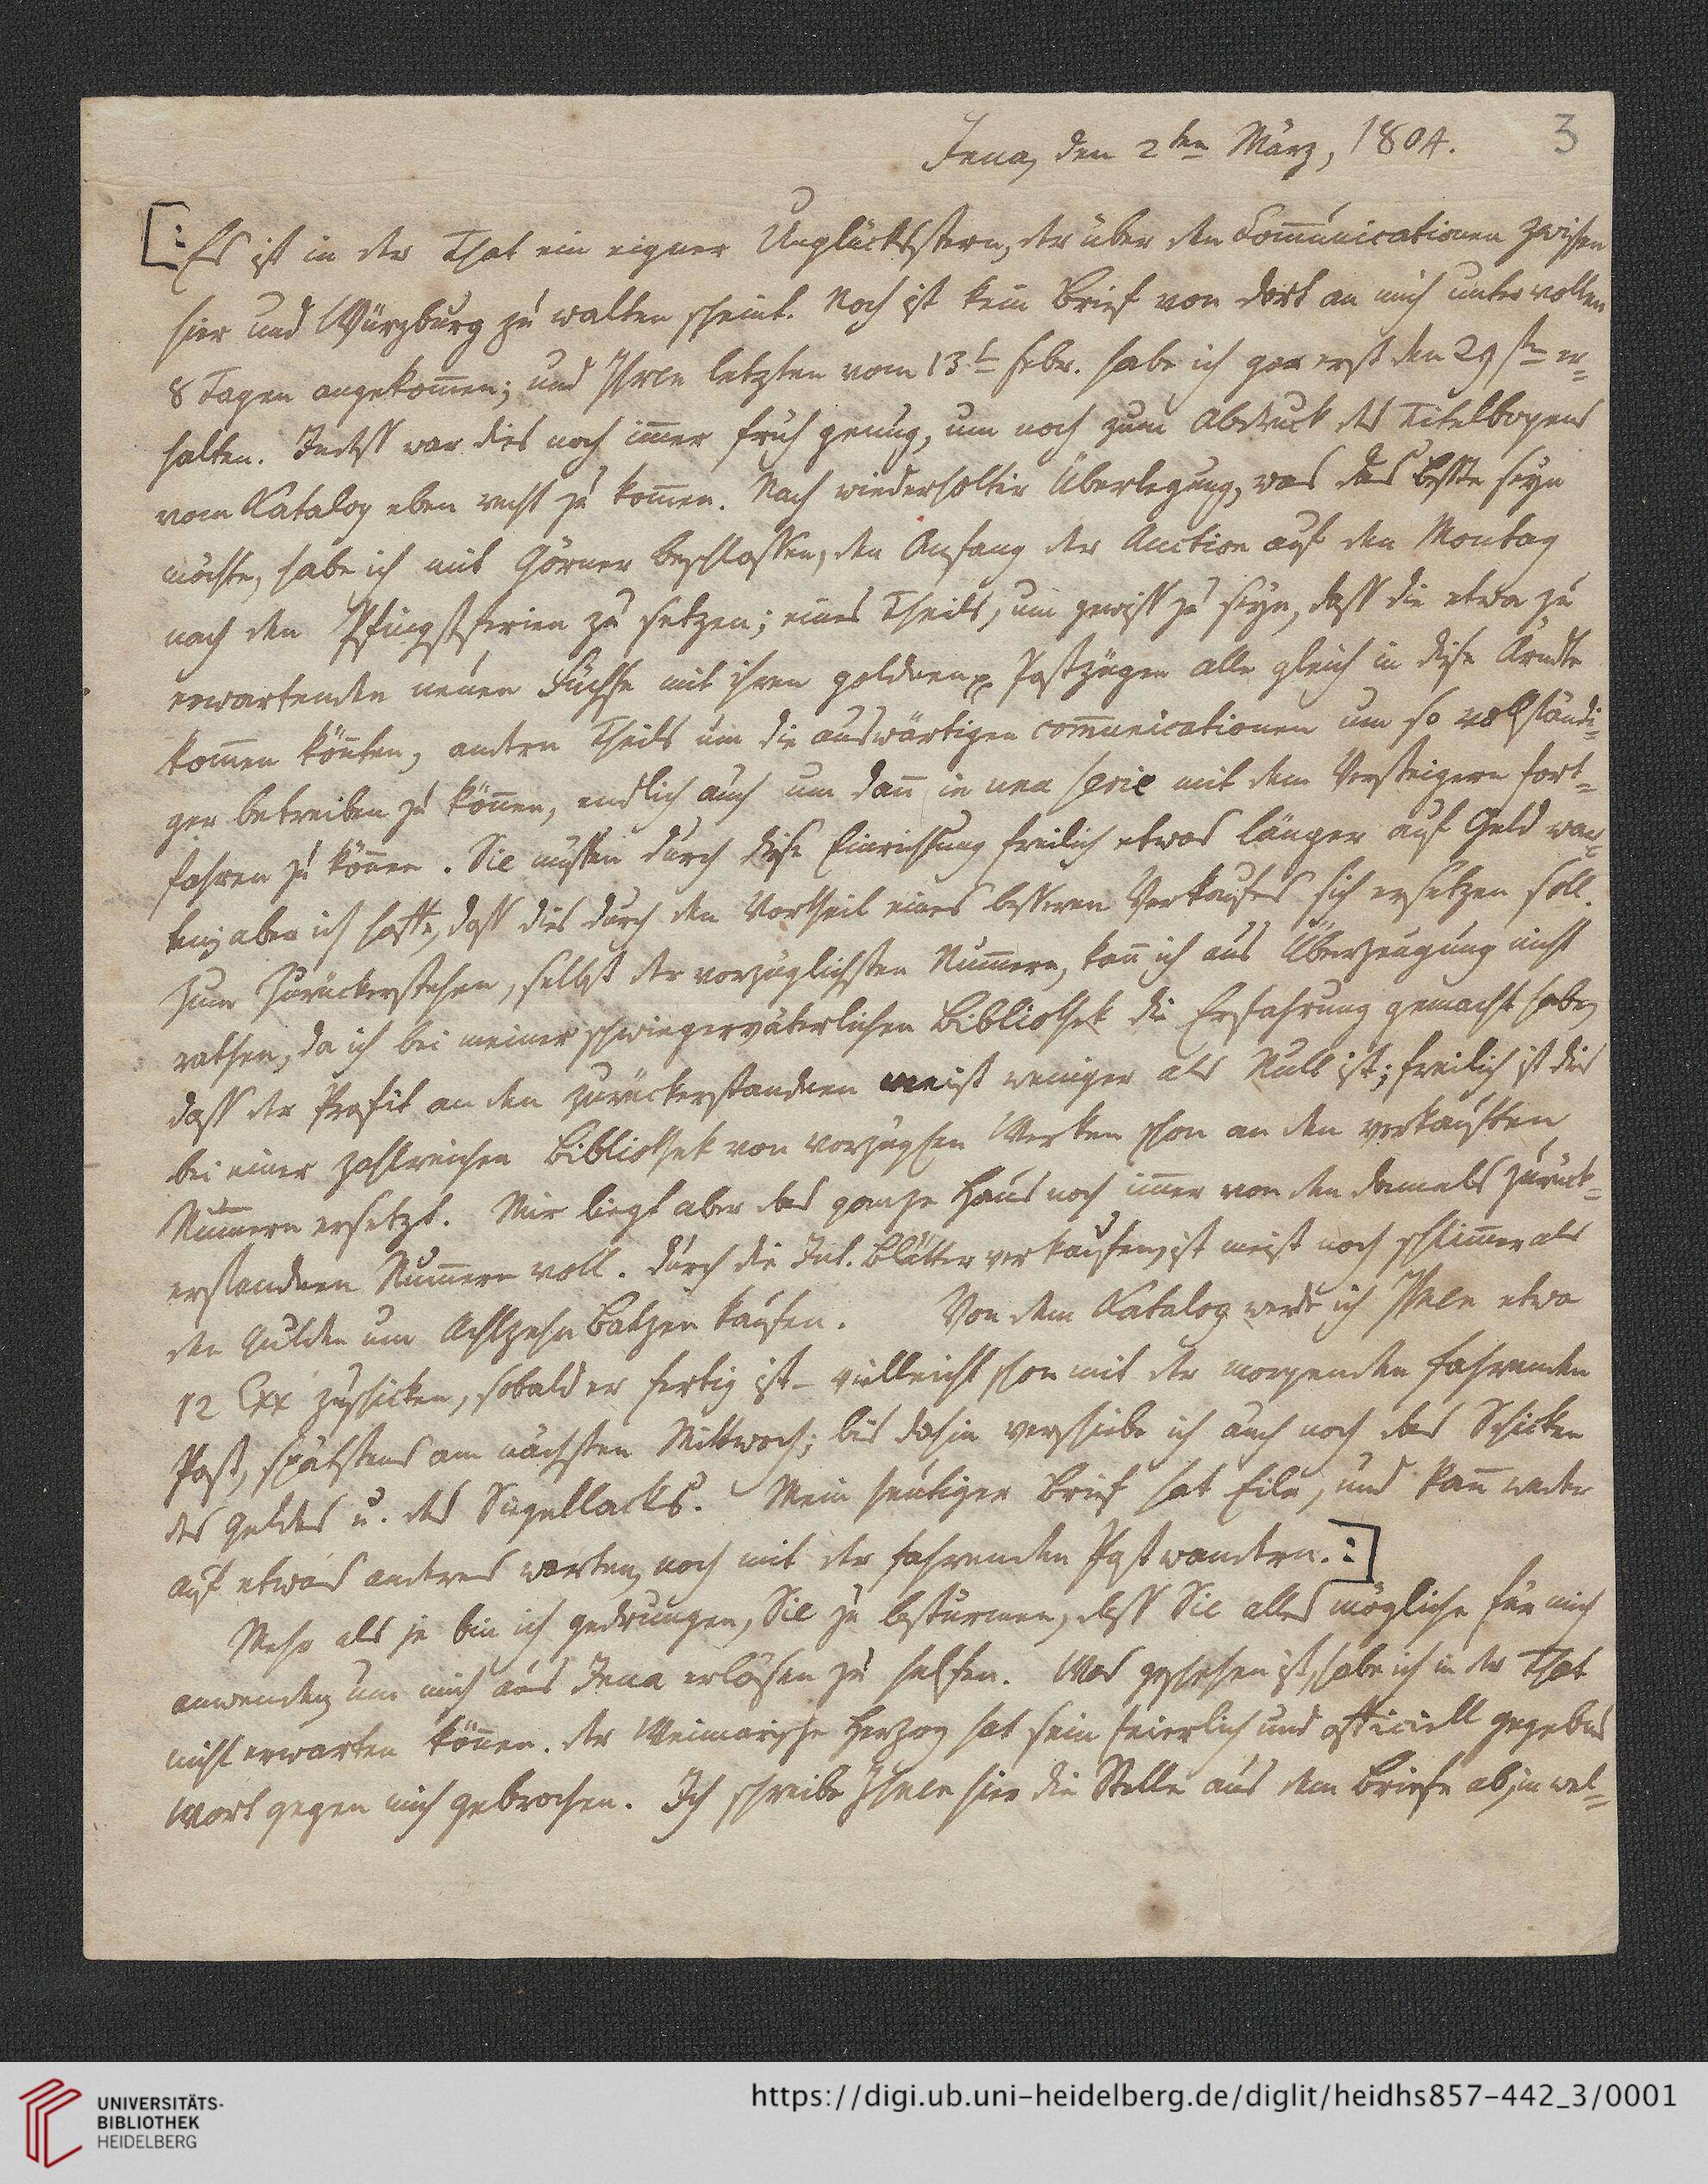 3
Jena, den 2ten März, 1804.
[: Es ist in der That ein eigner Unglücksstern, der über den Communicationen zwischen
hier und Würzburg zu walten scheint. Noch ist kein Brief von dort an mich unter vollen
8 Tagen angekom̄en; und Ihren letzten vom 13t Febr. habe ich gar erst den 29sten er=
halten. Indeß war dies noch im̄er früh genug, um noch zum Abdruck des Titelbogens
vom Katalog eben recht zu kom̄en. Nach wiederholter Überlegung, was das beste seyn
möchte, habe ich mit Görner beschlossen, den Anfang der Auction auf den Montag
nach den Pfingstferien zu setzen; eines Theils, um gewiss zu seyn, dass die etwa zu
erwartenden neuen Füchse mit ihren goldenen Postzügen alle gleich in diese Ärndte
kom̄en kön̄ten, andern Theils um die auswärtigen com̄unicationen um so vollständi=
ger betreiben zu kön̄en, endlich auch um dan̄ in una serie mit dem Versteigern fort=
fahren zu kön̄en. Sie müssen durch diese Einrichtung freilich etwas länger auf Geld war=
ten; aber ich hoffe, dass dies durch den Vortheil eines besseren Verkaufes sich ersetzen soll.
Zum Zurückerstehen, selbst der vorzüglichsten Num̄ern, kan̄ ich aus Überzeugung nicht
rathen, da ich bei meiner schwiegerväterlichen Bibliothek die Erfahrung gemacht habe,
dass der Profit an den zurückerstandnen meist weniger als Null ist; freilich ist dies
bei einer zahlreichen Bibliothek von vorzüglichen Werken schon an den verkauften
Num̄ern ersetzt. Mir liegt aber das ganze Haus noch im̄er von den damals zurück=
erstandnen Num̄ern voll. Durch die Int. Blätter verkaufen, ist meist noch schlim̄er als
den Gulden um Achtzehn Batzen kaufen. Von dem Katalog werde ich Ihnen etwa
12 Exx zuschicken, sobald er fertig ist – vielleicht schon mit der morgenden fahrenden
Post, spätstens am nächsten Mittwoch; bis dahin verschiebe ich auch noch das Schicken
des Geldes u. des Siegellacks. Mein heutiger Brief hat Eile, und kan̄ weder
auf etwas anderes warten, noch mit der fahrenden Post wandern. :]
Mehr als je bin ich gedrungen, Sie zu bestürmen, dass Sie alles mögliche für mich
anwenden, um mich aus Jena erlösen zu helfen. Was geschehen ist, habe ich in der That
nicht erwarten kön̄en. Der Weimarische Herzog hat sein feierlich und officiell gegebnes
Wort gegen mich gebrochen. Ich schreibe Ihnen hier die Stelle aus dem Briefe ab, in wel=
UNIVERSITÄTS-
BIBLIOTHEK
HEIDELBERG
https://digi.ub.uni-heidelberg.de/diglit/heidhs857-442_3/0001